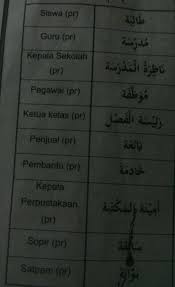 Siswa (pr) طَالِبَة
Guru (pr) مُدَرِّسَة
Kepala Sekolah
(pr) نَاظِرَةُ الْمَدْرَسَةِ
Pegawai (pr) مُوَظَّفَة
Ketua kelas (pr) رَئِيْسَةُ الْفَصْلِ
Penjual (pr) بَائِعَة
Pembantu (pr) خَادِمَة
Kepala
Perpustakaan. أَمِيْنَةُ الْمَكْتَبَةِ
(pr)
Sopir (pr) سَائِقَة
Satpam (pr)